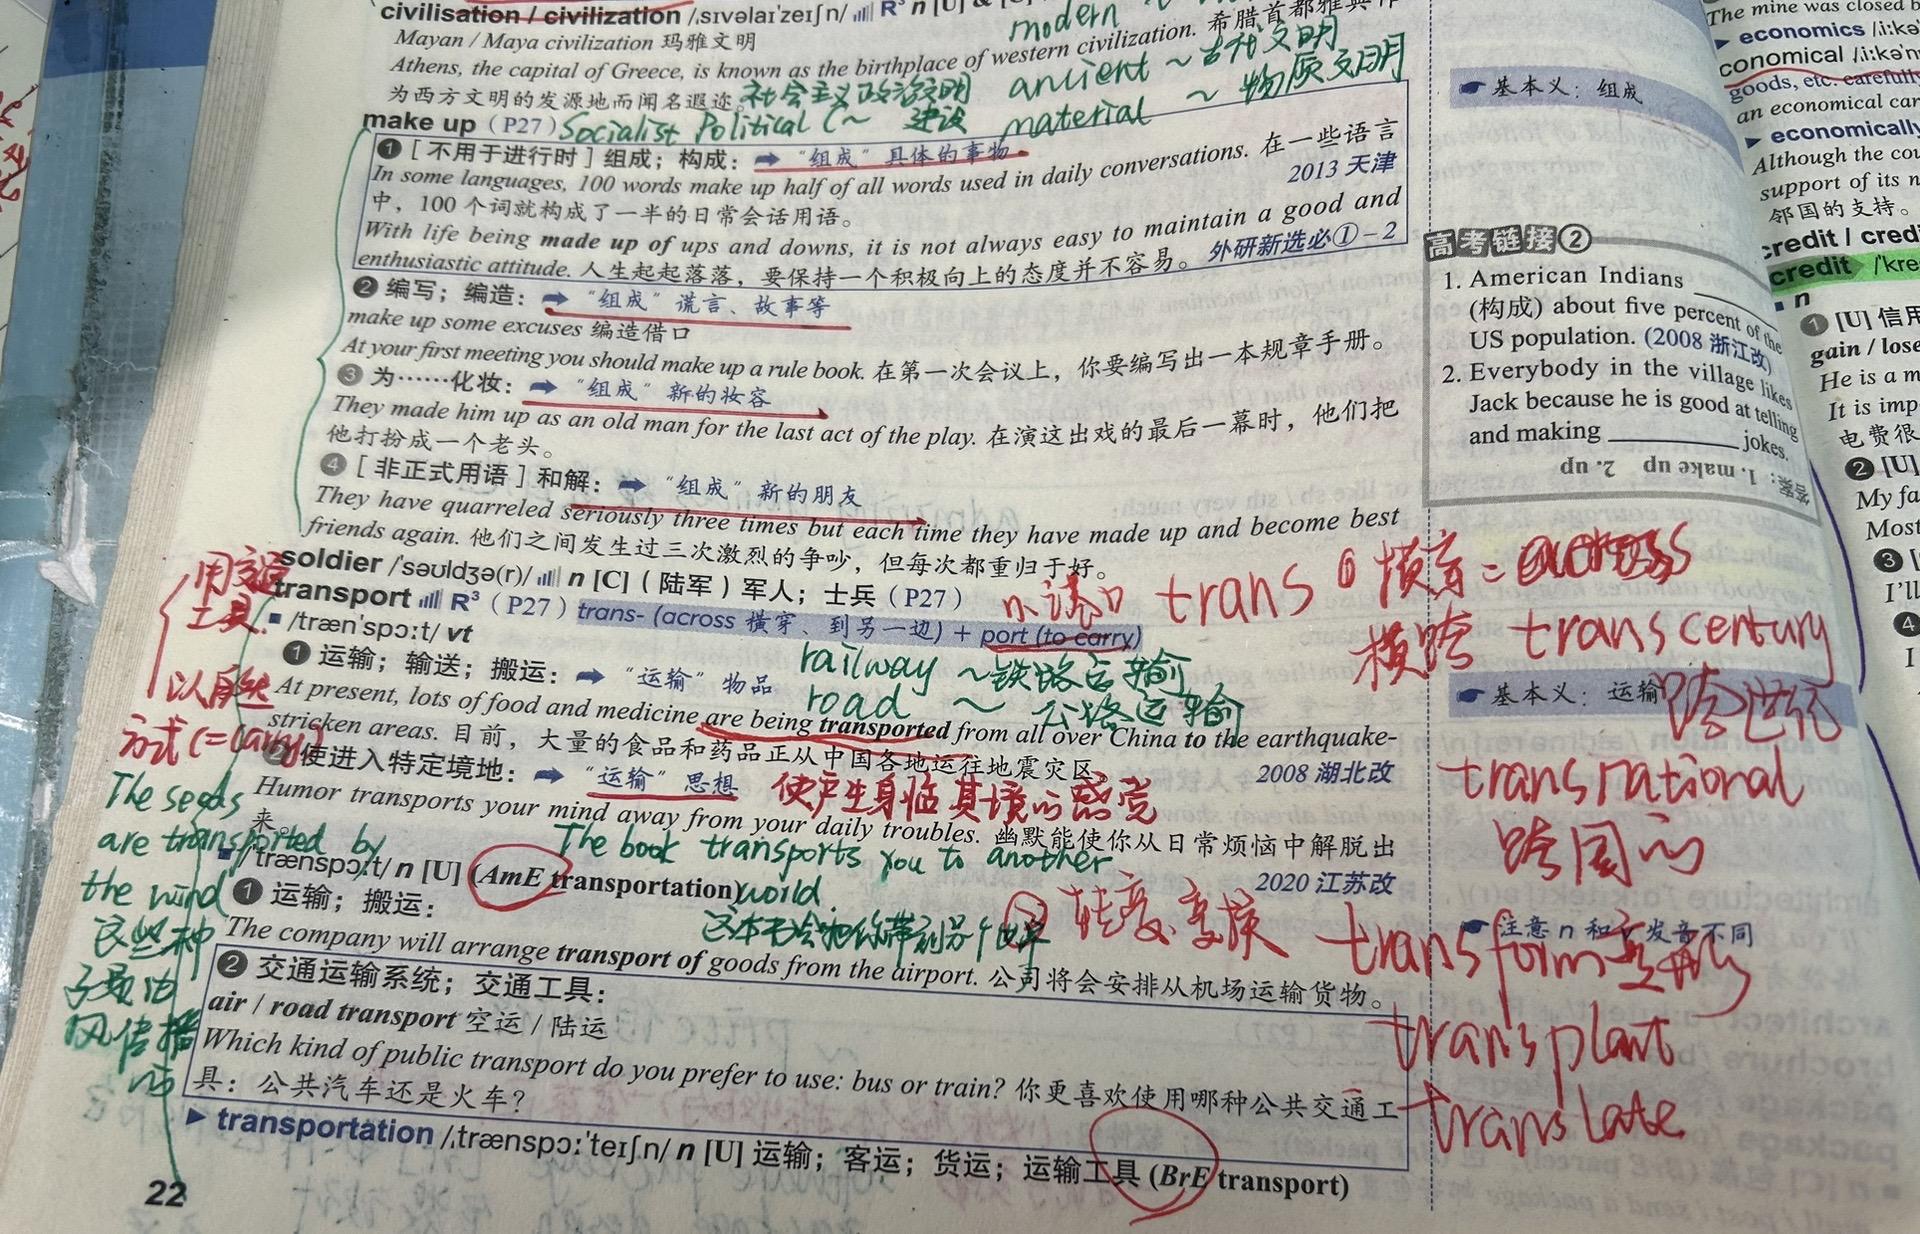 civilisation / civilization /ˌsɪvəlaɪˈzeɪʃn/ R³ n [U] &
modern
Mayan / Maya civilization 玛雅文明
Athens, the capital of Greece, is known as the birthplace of western civilization. 希腊首都雅典作
为西方文明的发源地而闻名遐迩。
ancient ~ 古代文明
material ~ 物质文明
社会主义政治文明建设
Socialist Political (~
make up (P27)
❶ [ 不用于进行时 ] 组成；构成：➡ “组成” 具体的事物
In some languages, 100 words make up half of all words used in daily conversations. 在一些语言
中，100 个词就构成了一半的日常会话用语。 2013 天津
With life being made up of ups and downs, it is not always easy to maintain a good and
enthusiastic attitude. 人生起起落落，要保持一个积极向上的态度并不容易。 外研新选必①－2
❷ 编写；编造：➡ “组成” 谎言、故事等
make up some excuses 编造借口
At your first meeting you should make up a rule book. 在第一次会议上，你要编写出一本规章手册。
❸ 为……化妆：➡ “组成” 新的妆容
They made him up as an old man for the last act of the play. 在演这出戏的最后一幕时，他们把
他打扮成一个老头。
❹ [ 非正式用语 ] 和解：➡ “组成” 新的朋友
They have quarreled seriously three times but each time they have made up and become best
friends again. 他们之间发生过三次激烈的争吵，但每次都重归于好。
soldier /ˈsəʊldʒə(r)/ n [C]（陆军）军人；士兵 (P27)
transport R³ (P27) trans- (across 横穿、到另一边) + port (to carry)
/trænˈspɔːt/ vt
❶ 运输；输送；搬运：➡ “运输” 物品
railway ~ 铁路运输
road ~ 公路运输
At present, lots of food and medicine are being transported from all over China to the earthquake-
stricken areas. 目前，大量的食品和药品正从中国各地运往地震灾区。 2008 湖北改
❷ 使进入特定境地：➡ “运输” 思想
使产生身临其境的感觉
Humor transports your mind away from your daily troubles. 幽默能使你从日常烦恼中解脱出
来。 2020 江苏改
The book transports you to another
world.
这本书会把你带到另个世界
/ˈtrænspɔːt/ n [U] (AmE transportation)
❶ 运输；搬运：
The company will arrange transport of goods from the airport. 公司将会安排从机场运输货物。
❷ 交通运输系统；交通工具：
air / road transport 空运 / 陆运
Which kind of public transport do you prefer to use: bus or train? 你更喜欢使用哪种公共交通工
具：公共汽车还是火车？
▶ transportation /ˌtrænspɔːˈteɪʃn/ n [U] 运输；客运；货运；运输工具 (BrE transport)
22
用交通
工具
以自然
方式 (=carry)
The seeds
are transported by
the wind
这些种
子是由
风传播
的
基本义：组成
高考链接②
1. American Indians ________
(构成) about five percent of the
US population. (2008 浙江改)
2. Everybody in the village likes
Jack because he is good at telling
and making ________ jokes.
答案：1. make up 2. up
trans ① 横穿 = across
横跨 transcentury
基本义：运输
跨世纪
transnational
跨国的
注意 n 和 v 发音不同
② 转变、变换 transform
transplant
translate
The mine was closed b
▶ economics /ˌiːkə
conomical /ˌiːkəˈn
goods, etc. carefully
an economical car
▶ economically
Although the cou
support of its n
邻国的支持。
credit / credi
credit /ˈkre
n
❶ [U] 信用
gain / lose
He is a m
It is imp
电费很
❷ [U]
My fa
Most
❸ [
I'll
❹
I